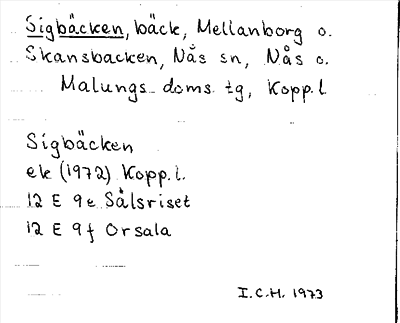 Sigbäcken, bäck, Mellanborg o.
Skansbacken, Nås sn, Nås o.
Malungs doms. tg, Kopp. l.
Sigbäcken
ek (1972) Kopp. l.
12 E 9 e Sålsriset
12 E 9 f Orsala
I.C.H. 1973